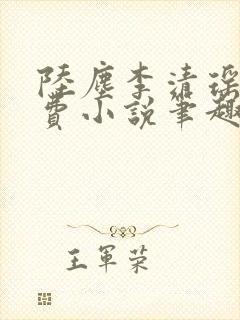 陸塵李清瑤
費小說筆趣
王軍榮